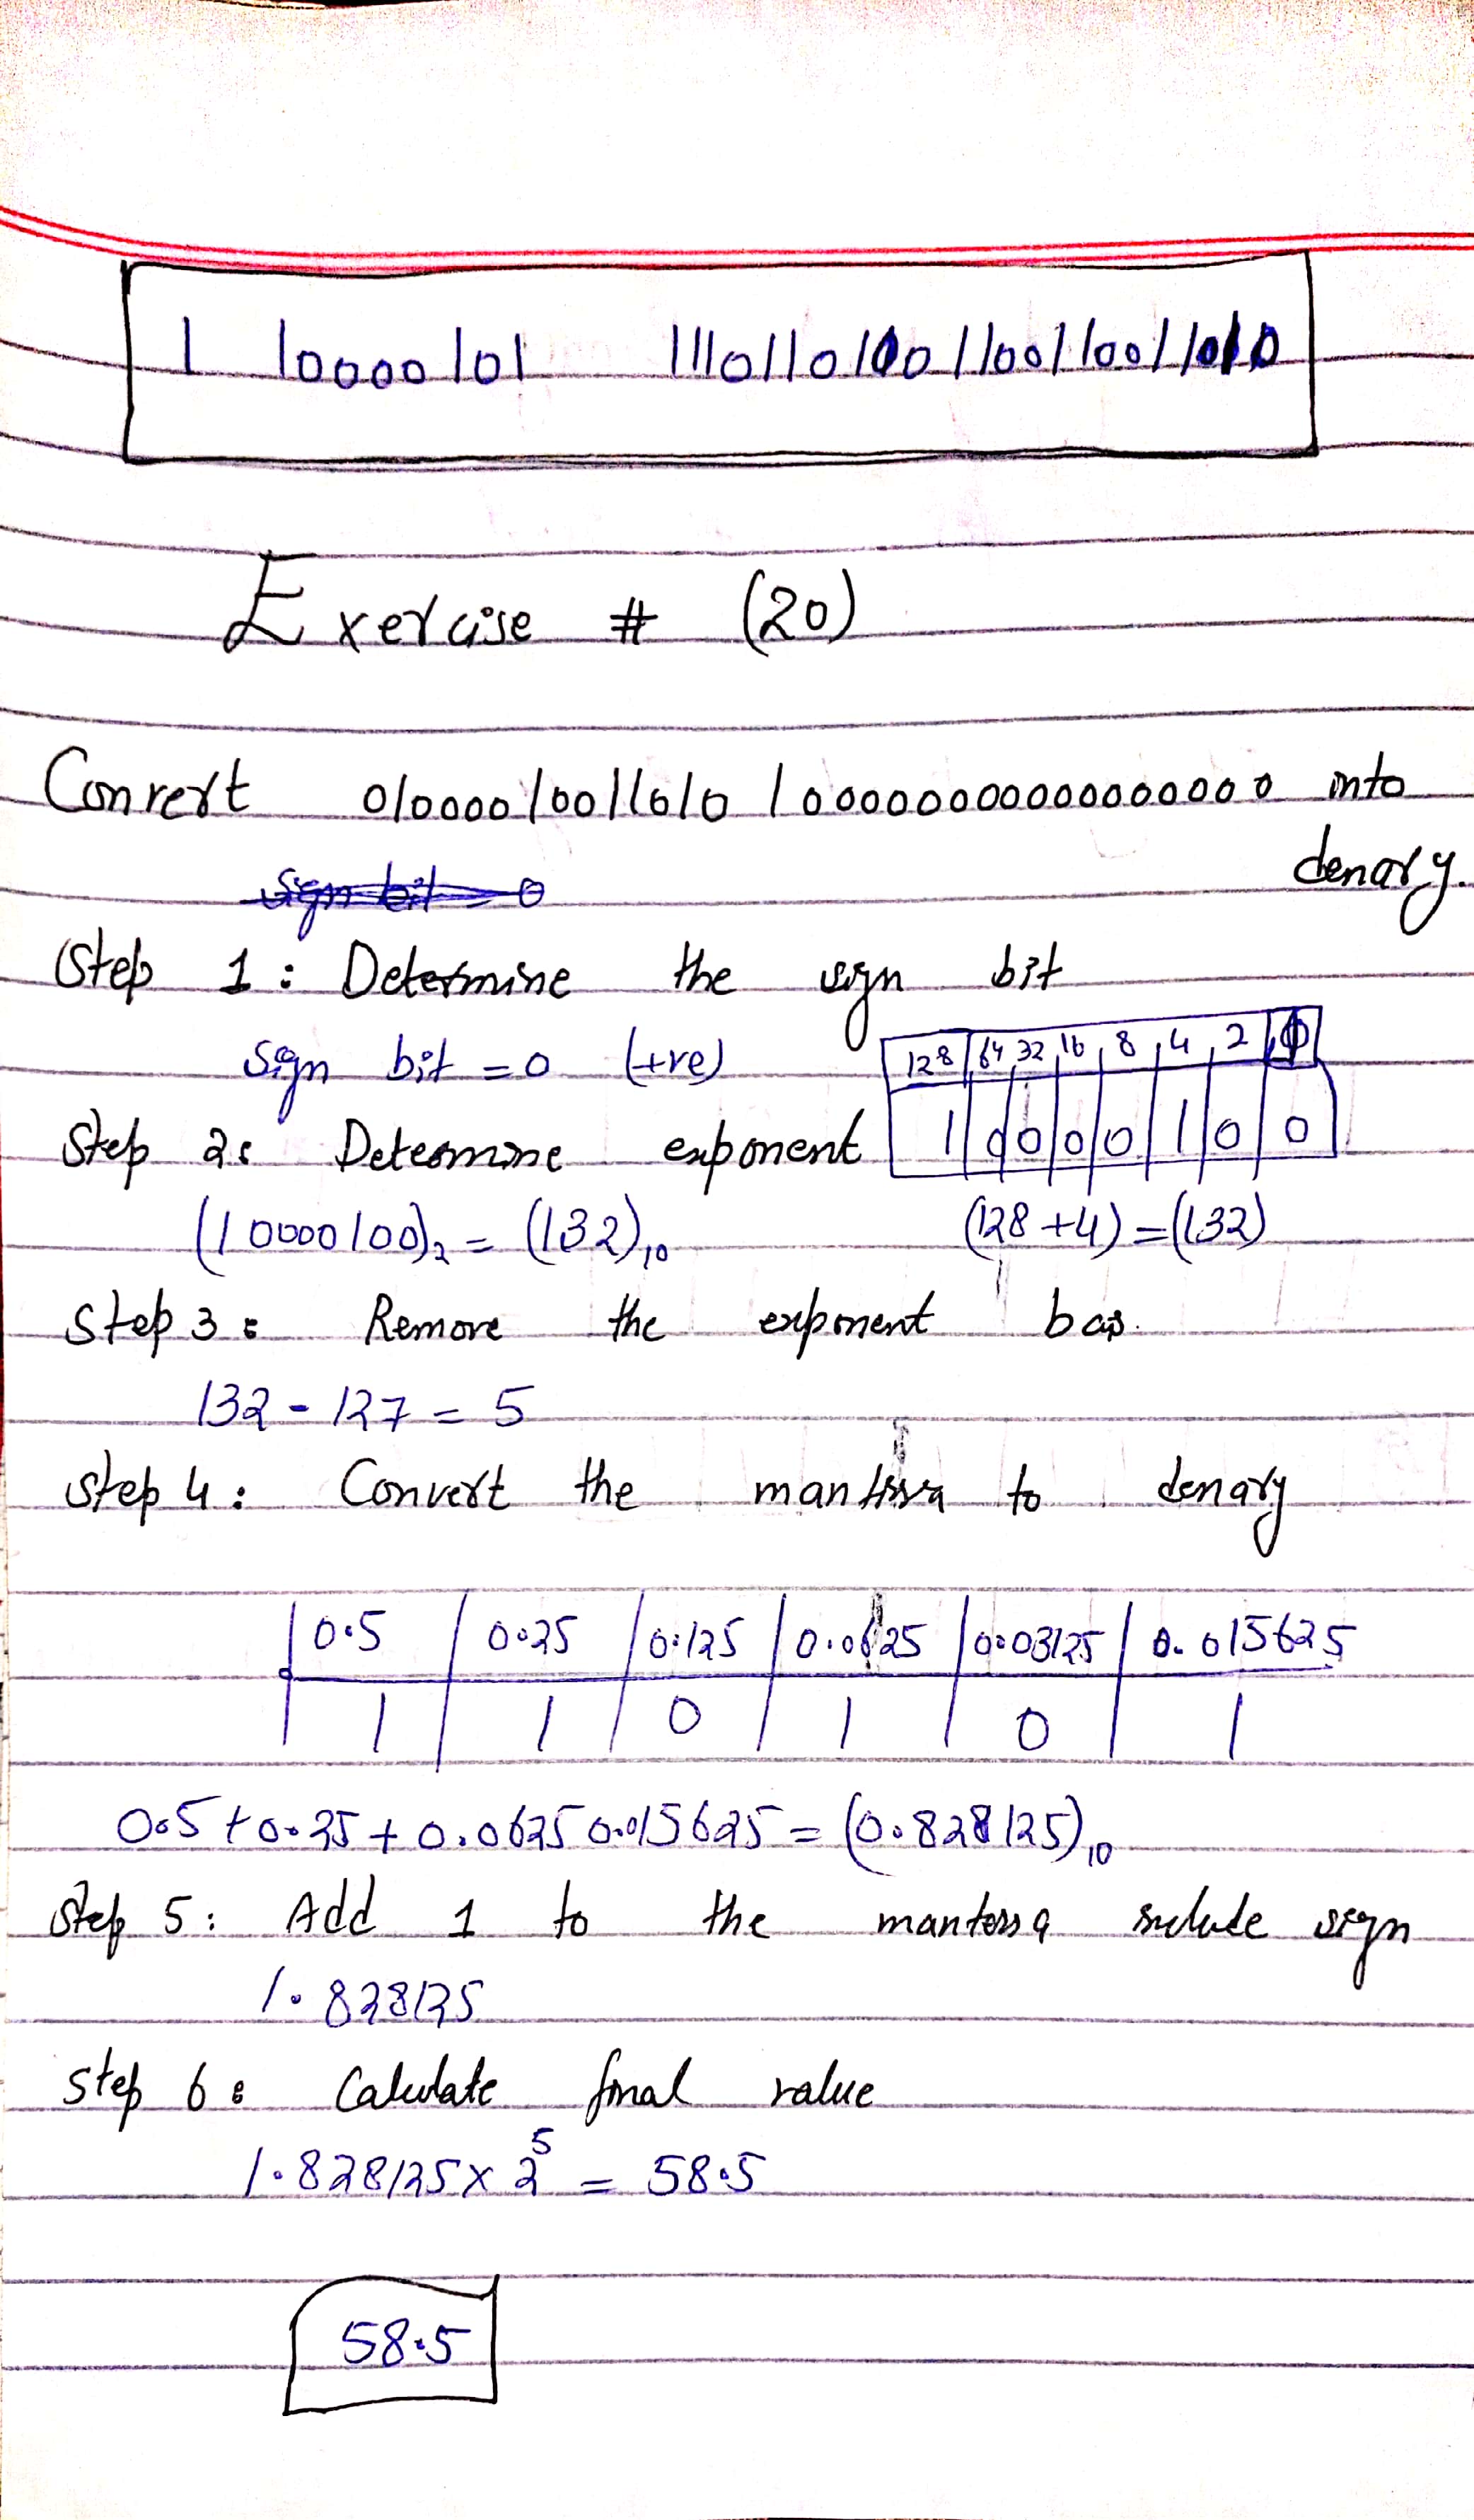 1 10000101 11101101001100110011010
Exercise # (20)
Convert 01000010011010100000000000000000 into
denary.
Step 1: Determine the sign bit
Sign bit = 0 (+ve)
128 64 32 16 8 4 2
Step 2: Determine exponent
1 0 0 0 0 1 0 0
(10000100)₂ = (132)₁₀ (128+4) = (132)
Step 3: Remove the exponent bais.
132 - 127 = 5
Step 4: Convert the mantissa to denary
0.5 0.25 0.125 0.0625 0.03125 0.015625
1 1 0 1 0 1
0.5 + 0.25 + 0.0625 0.015625 = (0.828125)₁₀
Step 5: Add 1 to the mantossa include sign
1.828125
Step 6: Calculate final value
1.828125 x 2⁵ = 58.5
58.5